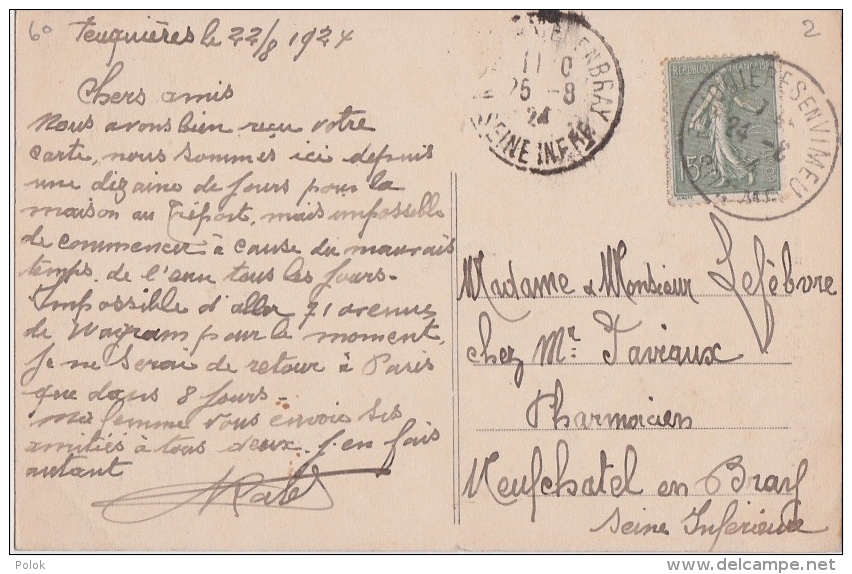 60
Feuquières le 22/8 1924
2
Chers amis
Nous avons bien reçu votre
carte, nous sommes ici depuis
une dizaine de jours pour la
maison au Tréport, mais impossible
de commencer à cause du mauvais
temps. de l'eau tous les jours-
Impossible d'aller 71 avenue
de Wagram pour le moment,
je ne serai de retour à Paris
que dans 8 jours-
Ma femme vous envoie ses
amitiés à tous deux. j'en fais
autant
EN BRAY
25 -8
24
SEINE INFRE
REPUBLIQUE FRANÇAISE
15
FEUQUIERES EN VIMEU
24 -8
Madame & Monsieur Lefèbvre
chez Mr Taviaux
Pharmacien
Neufchatel en Bray
Seine Inférieure
Polok
www.delcampe.net